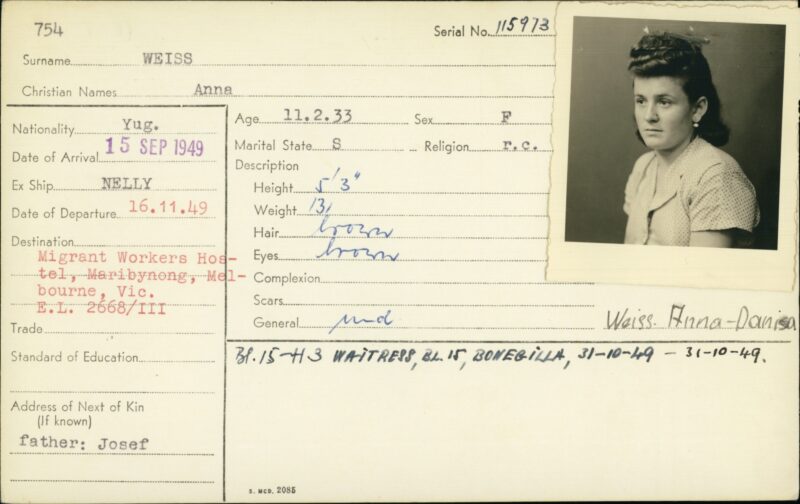 754
Serial No. 115973
Surname WEISS
Christian Names Anna
Nationality Yug.
Date of Arrival 15 SEP 1949
Ex Ship NELLY
Date of Departure 16.11.49
Destination
Migrant Workers Hos-
tel, Maribynong, Mel-
bourne, Vic.
E.L. 2668/III
Trade
Standard of Education
Address of Next of Kin
(If known)
father: Josef
Age 11.2.33 Sex F
Marital State S Religion r.c.
Description
Height 5'3"
Weight 131
Hair brown
Eyes brown
Complexion
Scars
General
Weiss. Anna-Danisa
Bl.15-H3 WAITRESS, BL.15, BONEGILLA, 31-10-49 - 31-10-49.
S. MCD. 2085